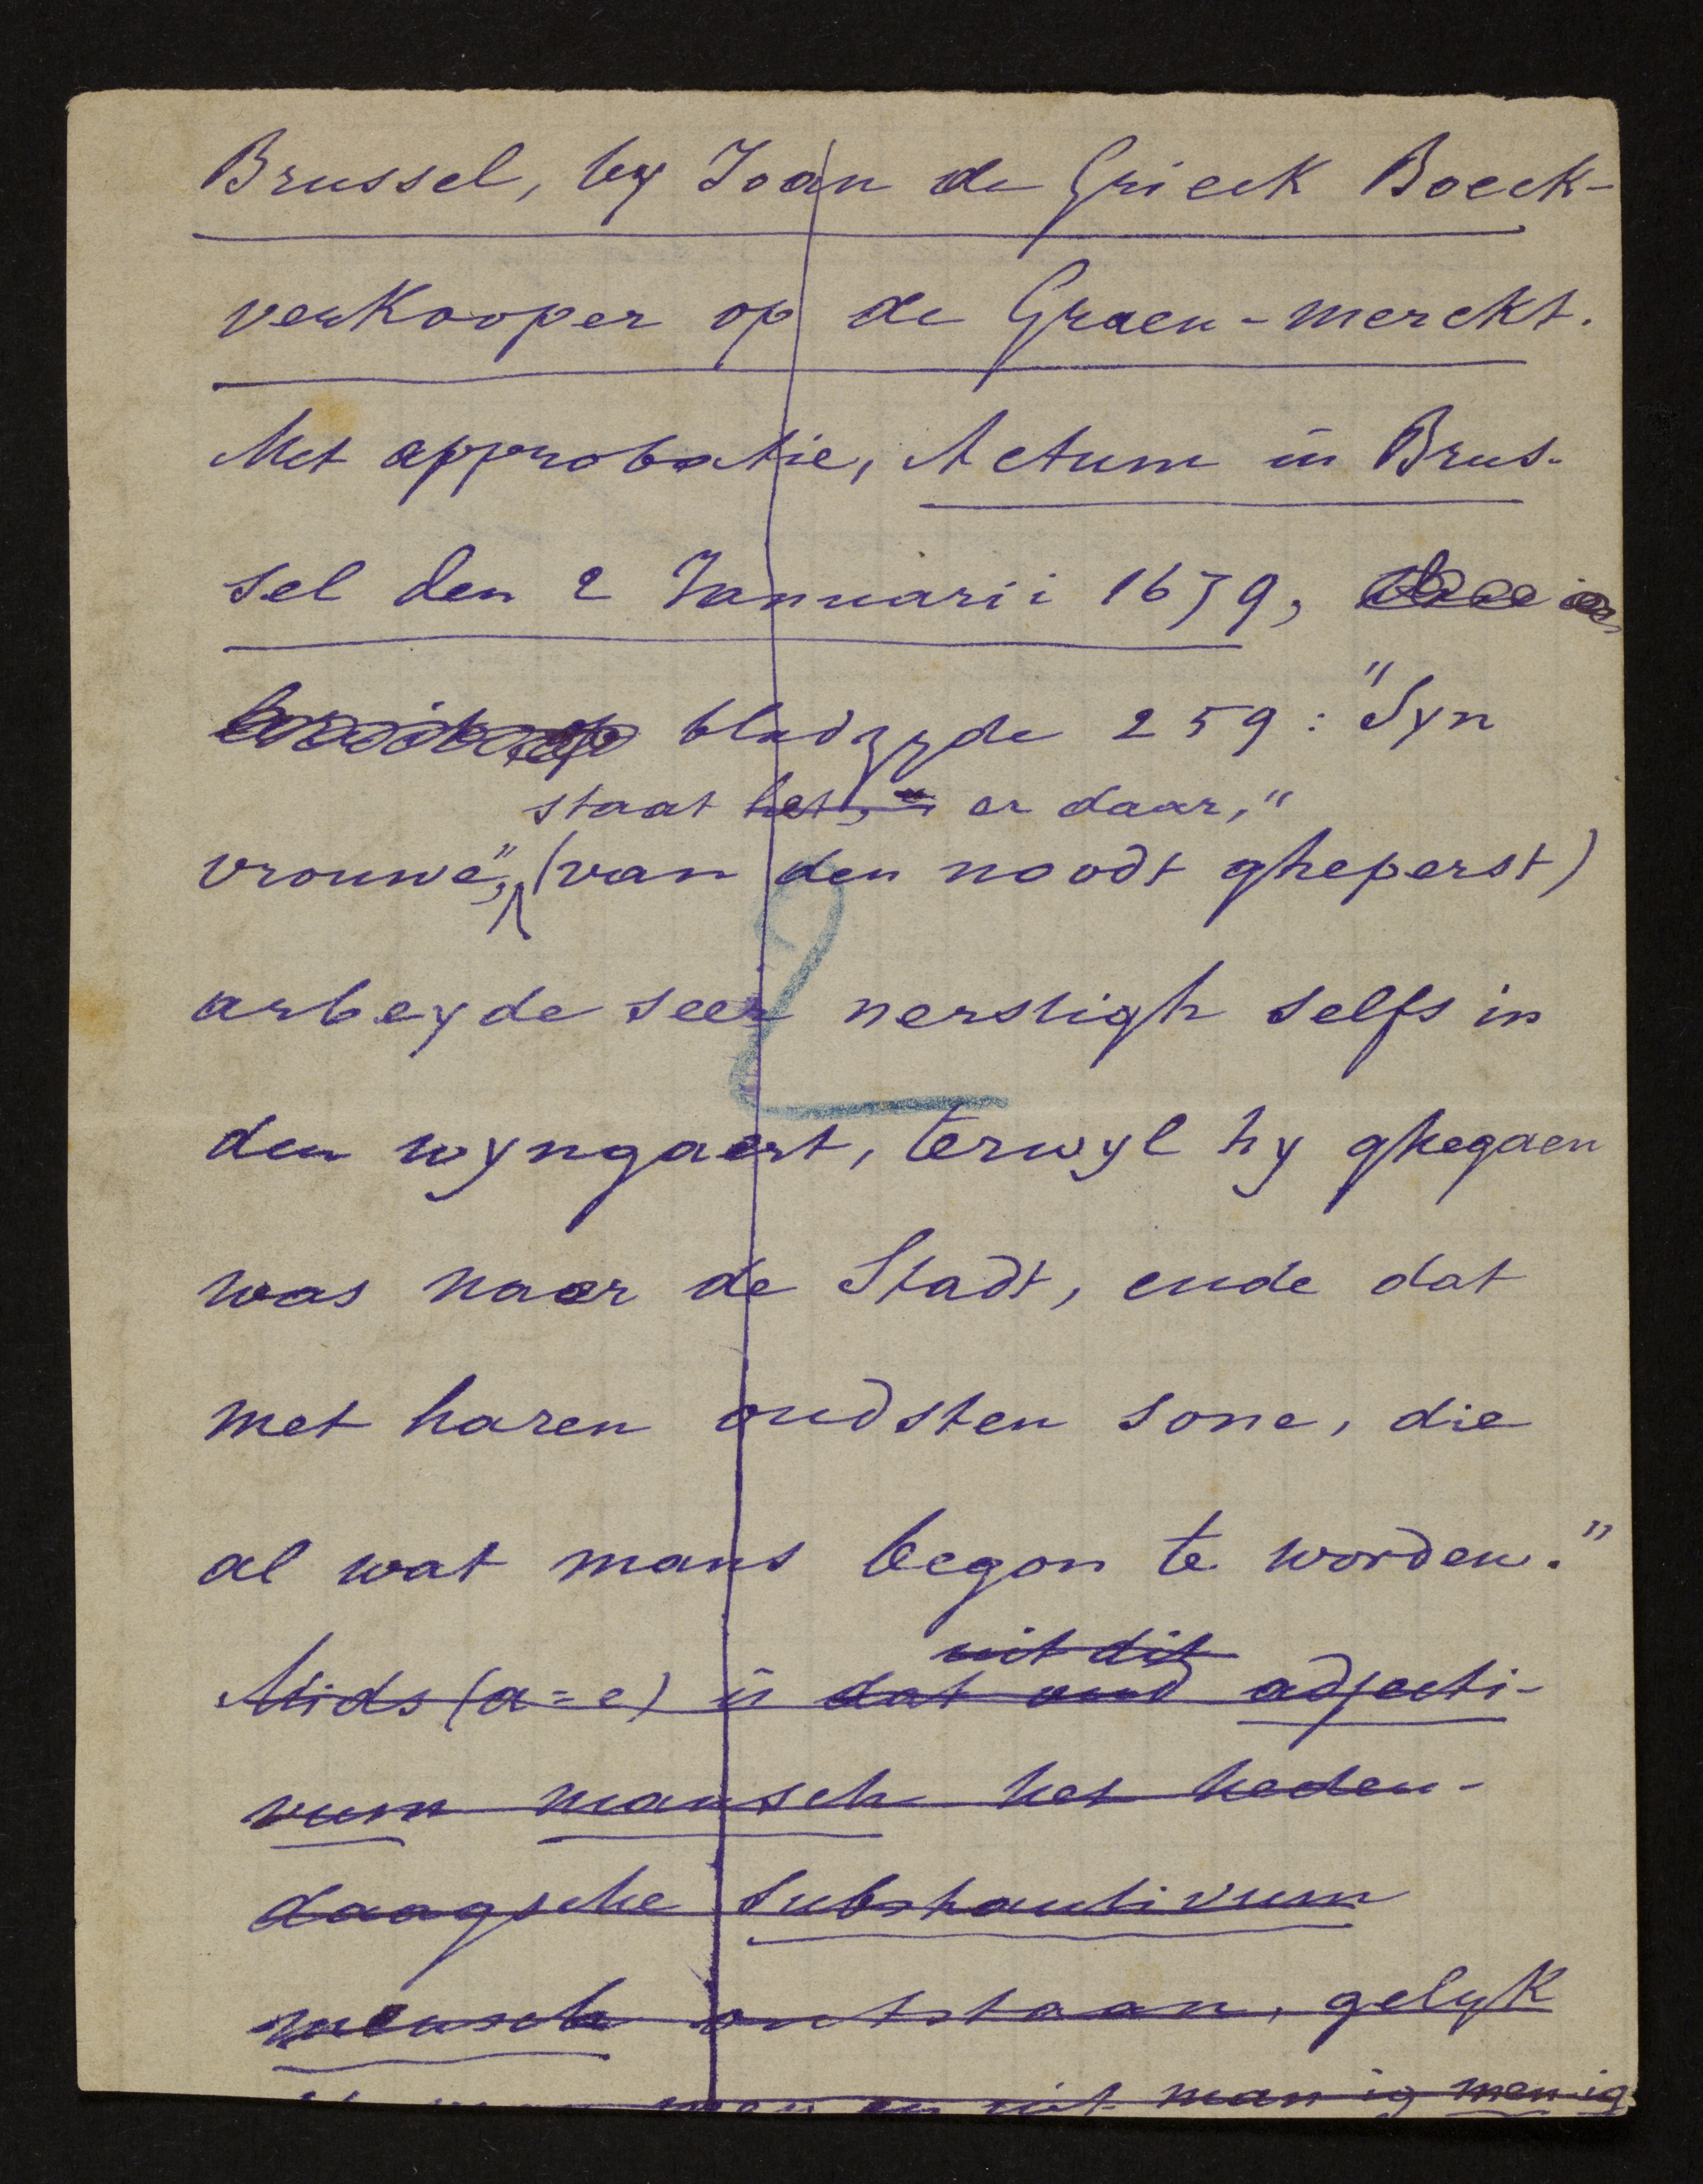 Brussel, by Joan de Grieck Boeck-
verkooper op de Graen-merckt.
Met approbatie, Actum in Brus-
sel den 2 Januarii 1679,
bladzyde 259: "Syn
staat het, er daar,"
vrouwe", (van den noodt gheperst)
arbeyde seer nerstigh selfs in
den wyngaert, terwyl hy ghegaen
was naer de Stadt, ende dat
met haren oudsten sone, die
al wat mans begon te worden."
uit dit
Mids (a=e) is dat oud adjecti-
vum mansch het heden-
daagsche substantivum
mensch ontstaan, gelyk
man en uit manig menig